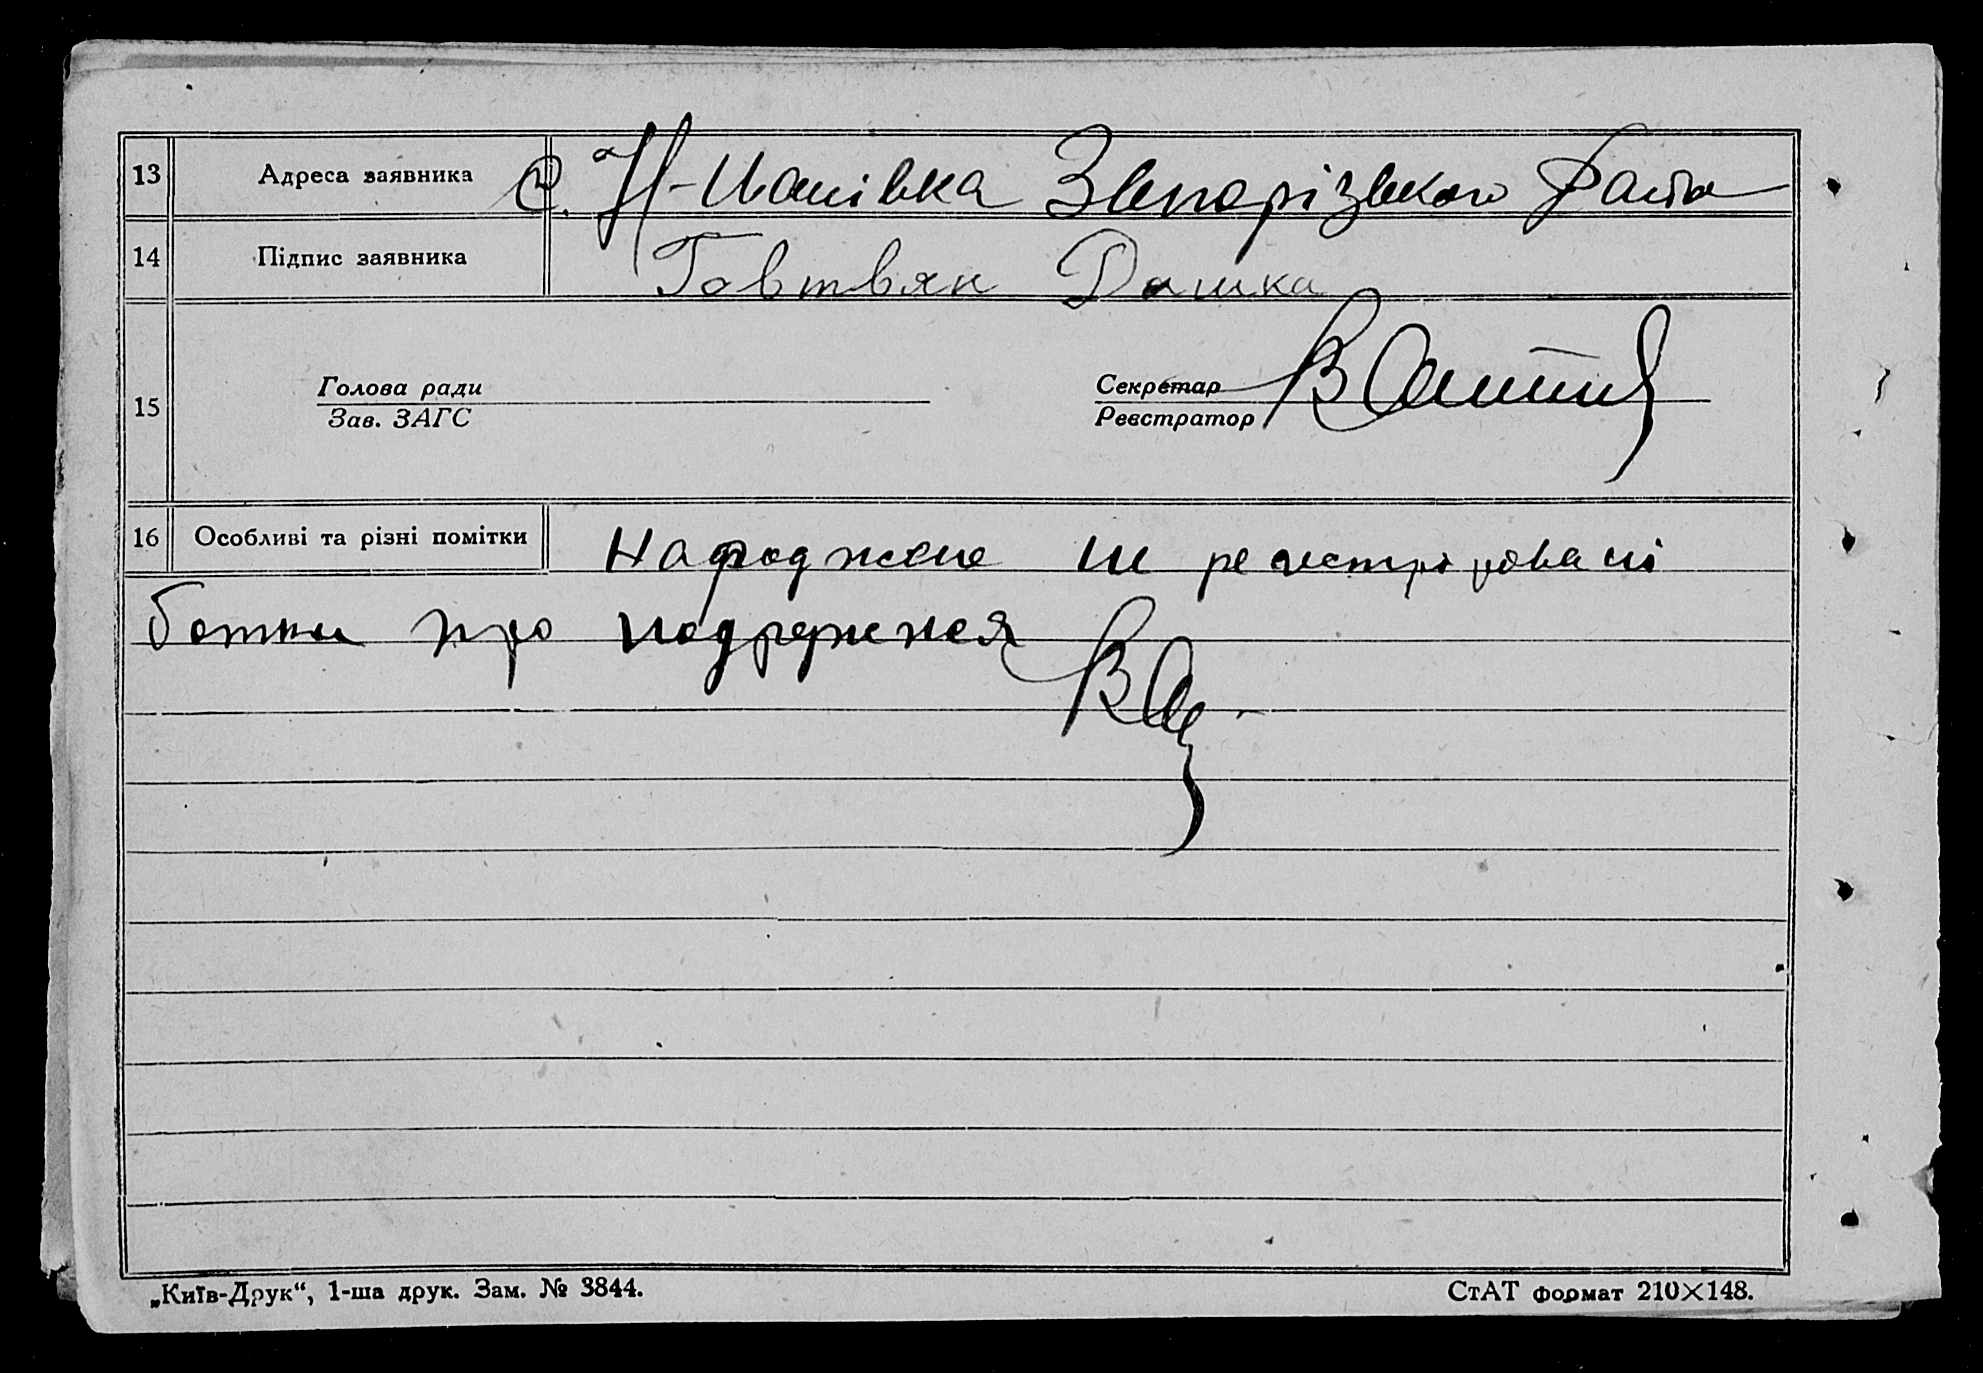 13 Адреса заявника с. Н-Іванівка Запорізького Району
14 Підпис заявника Говтвян Дашка
Голова ради Секретар
15
Зав. ЗАГС Реєстратор
16 Особливі та різні помітки Народжене не
про
„Київ-Друк“, 1-ша друк. Зам. № 3844. СтАТ формат 210×148.